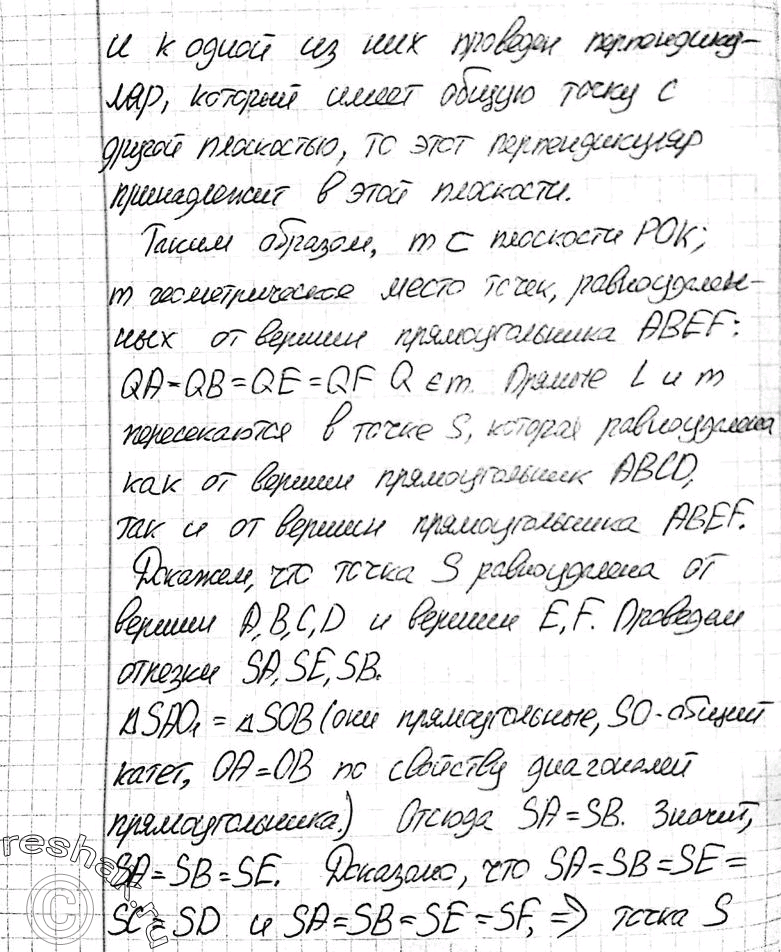 и к одной из них проведен перпендику-
ляр, который имеет общую точку с
другой плоскостью, то этот перпендикуляр
принадлежит в этой плоскости.
Таким образом, m ⊂ плоскости POK;
m геометрическое место точек, равноудален-
ных от вершин прямоугольника ABEF:
QA=QB=QE=QF Q ∈ m. Прямые L и m
пересекаются в точке S, которая равноудалена
как от вершин прямоугольник ABCD,
так и от вершин прямоугольника ABEF.
Докажем, что точка S равноудалена от
вершин A,B,C,D и вершин E,F. Проведем
отрезки SA, SE, SB.
ΔSAO₁ = ΔSOB (они прямоугольные, SO-общий
катет, OA=OB по свойству диагоналей
прямоугольника.) Отсюда SA=SB. Значит,
SA=SB=SE. Доказано, что SA=SB=SE=
SC=SD и SA=SB=SE=SF, ⇒ точка S
©reshak.ru